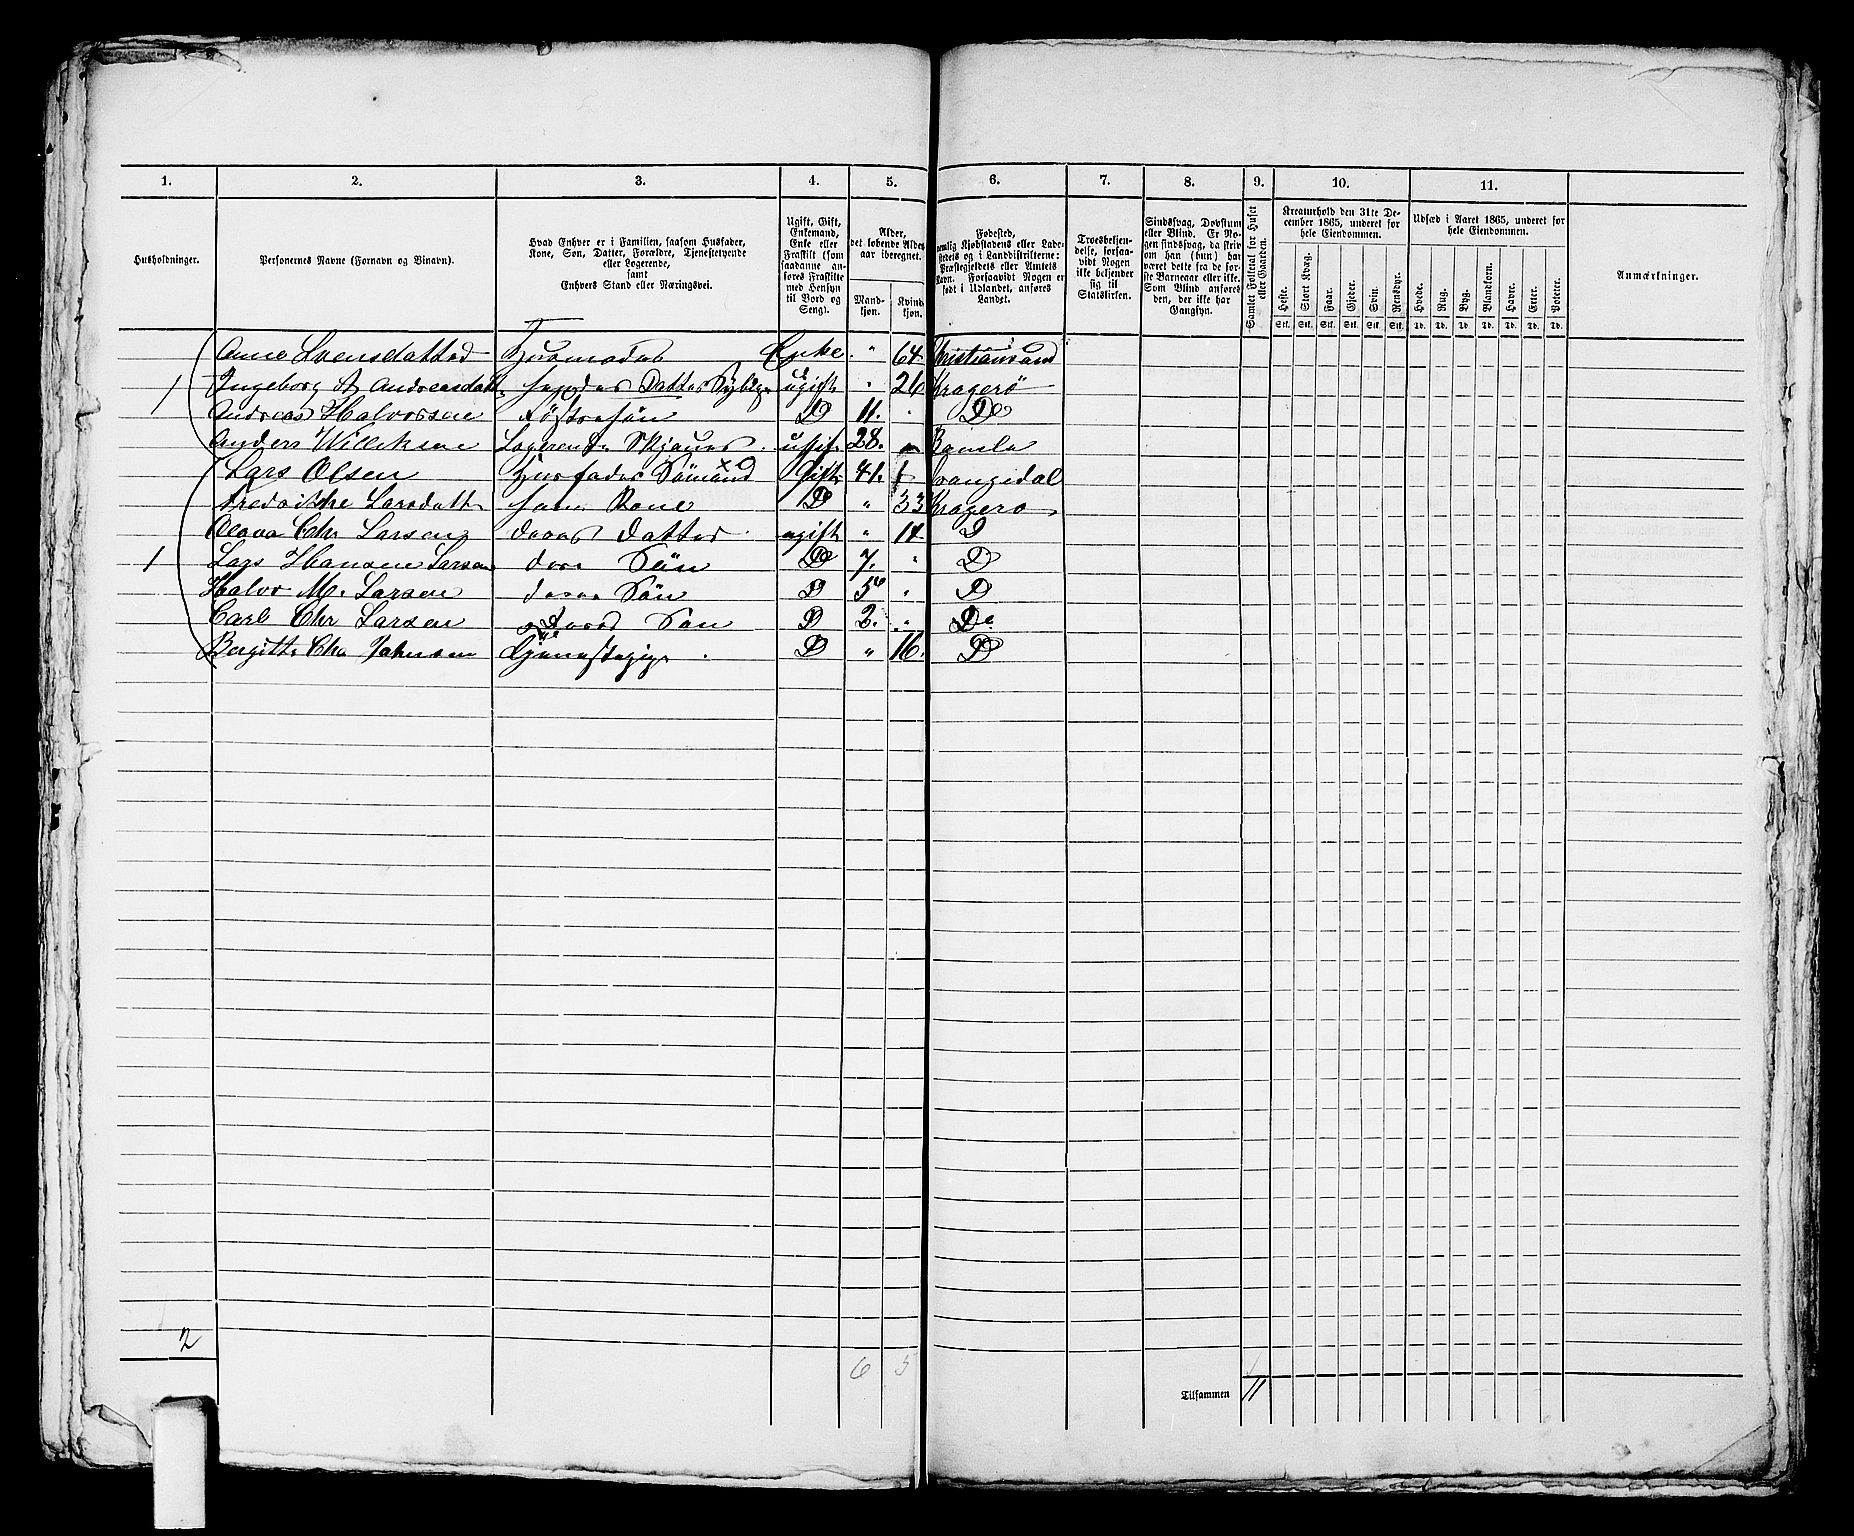 1. 2. 3. 4. 5. 6. 7. 8. 9. 10. 11.
Husholdninger.
Personernes Navne (Fornavn og Binavn).
Hvad Enhver er i Familien, saasom Husfader,
Kone, Søn, Datter, Forældre, Tjenestetyende
eller Logerende,
samt
Enhvers Stand eller Næringsvei.
Ugift, Gift,
Enkemand,
Enke eller
Fraskilt (som
saadanne an-
føres Fraskilte
med Hensyn
til Bord og
Seng).
Alder,
det løbende Alders-
aar iberegnet.
Mand-
kjøn.
Kvind-
kjøn.
Fødested,
nemlig Kjøbstadens eller Lade-
stedets og i Landdistrikterne:
Præstegjeldets eller Amtets
Navn. Forsaavidt Nogen er
født i Udlandet, anføres
Landet.
Troesbekjen-
delse, forsaa-
vidt Nogen
ikke bekjender
sig til
Statskirken.
Sindssvag, Døvstum
eller Blind. Er No-
gen sindssvag, da skriv
om han (hun) har
været dette fra de før-
ste Barneaar eller ikke.
Som Blind anføres
den, der ikke har
Gangsyn.
Samlet Folketal for Huset
eller Gaarden.
Kreaturhold den 31te De-
cember 1865, underet for
hele Eiendommen.
Heste. Stort Kvæg. Faar. Gjeder. Svin. Rensdyr.
Stk. Stk. Stk. Stk. Stk. Stk.
Udsæd i Aaret 1865, underet for
hele Eiendommen.
Hvede. Rug. Byg. Blandkorn. Havre. Erter. Poteter.
Td. Td. Td. Td. Td. Td. Td.
Anmærkninger.
Anne Svensdatter Husmoder Enke " 64 Christiansand
1 Ingeborg A Andreasdatt hendes Datter ugift " 26 Kragerø
Andreas Halvorsen Fostersøn D 11. " Do
Anders Willeksen Logerende ugift 28. " Bamle
Lars Olsen Husfader Sömand Gift 41. Drangedal
Larsdatt hans Kone D " 33 Kragero
Olava Chr Larsen deres Datter ugift " 14 D
1 Lars Hansen Larsen deres Sön Do 7. " D
Halvor M. Larsen deres Sön D 5 " D
Carl Chr Larsen deres Sön D 2. " Do
Bergitte Johnsen D " 16. D
2
6 5
Tilsammen 11